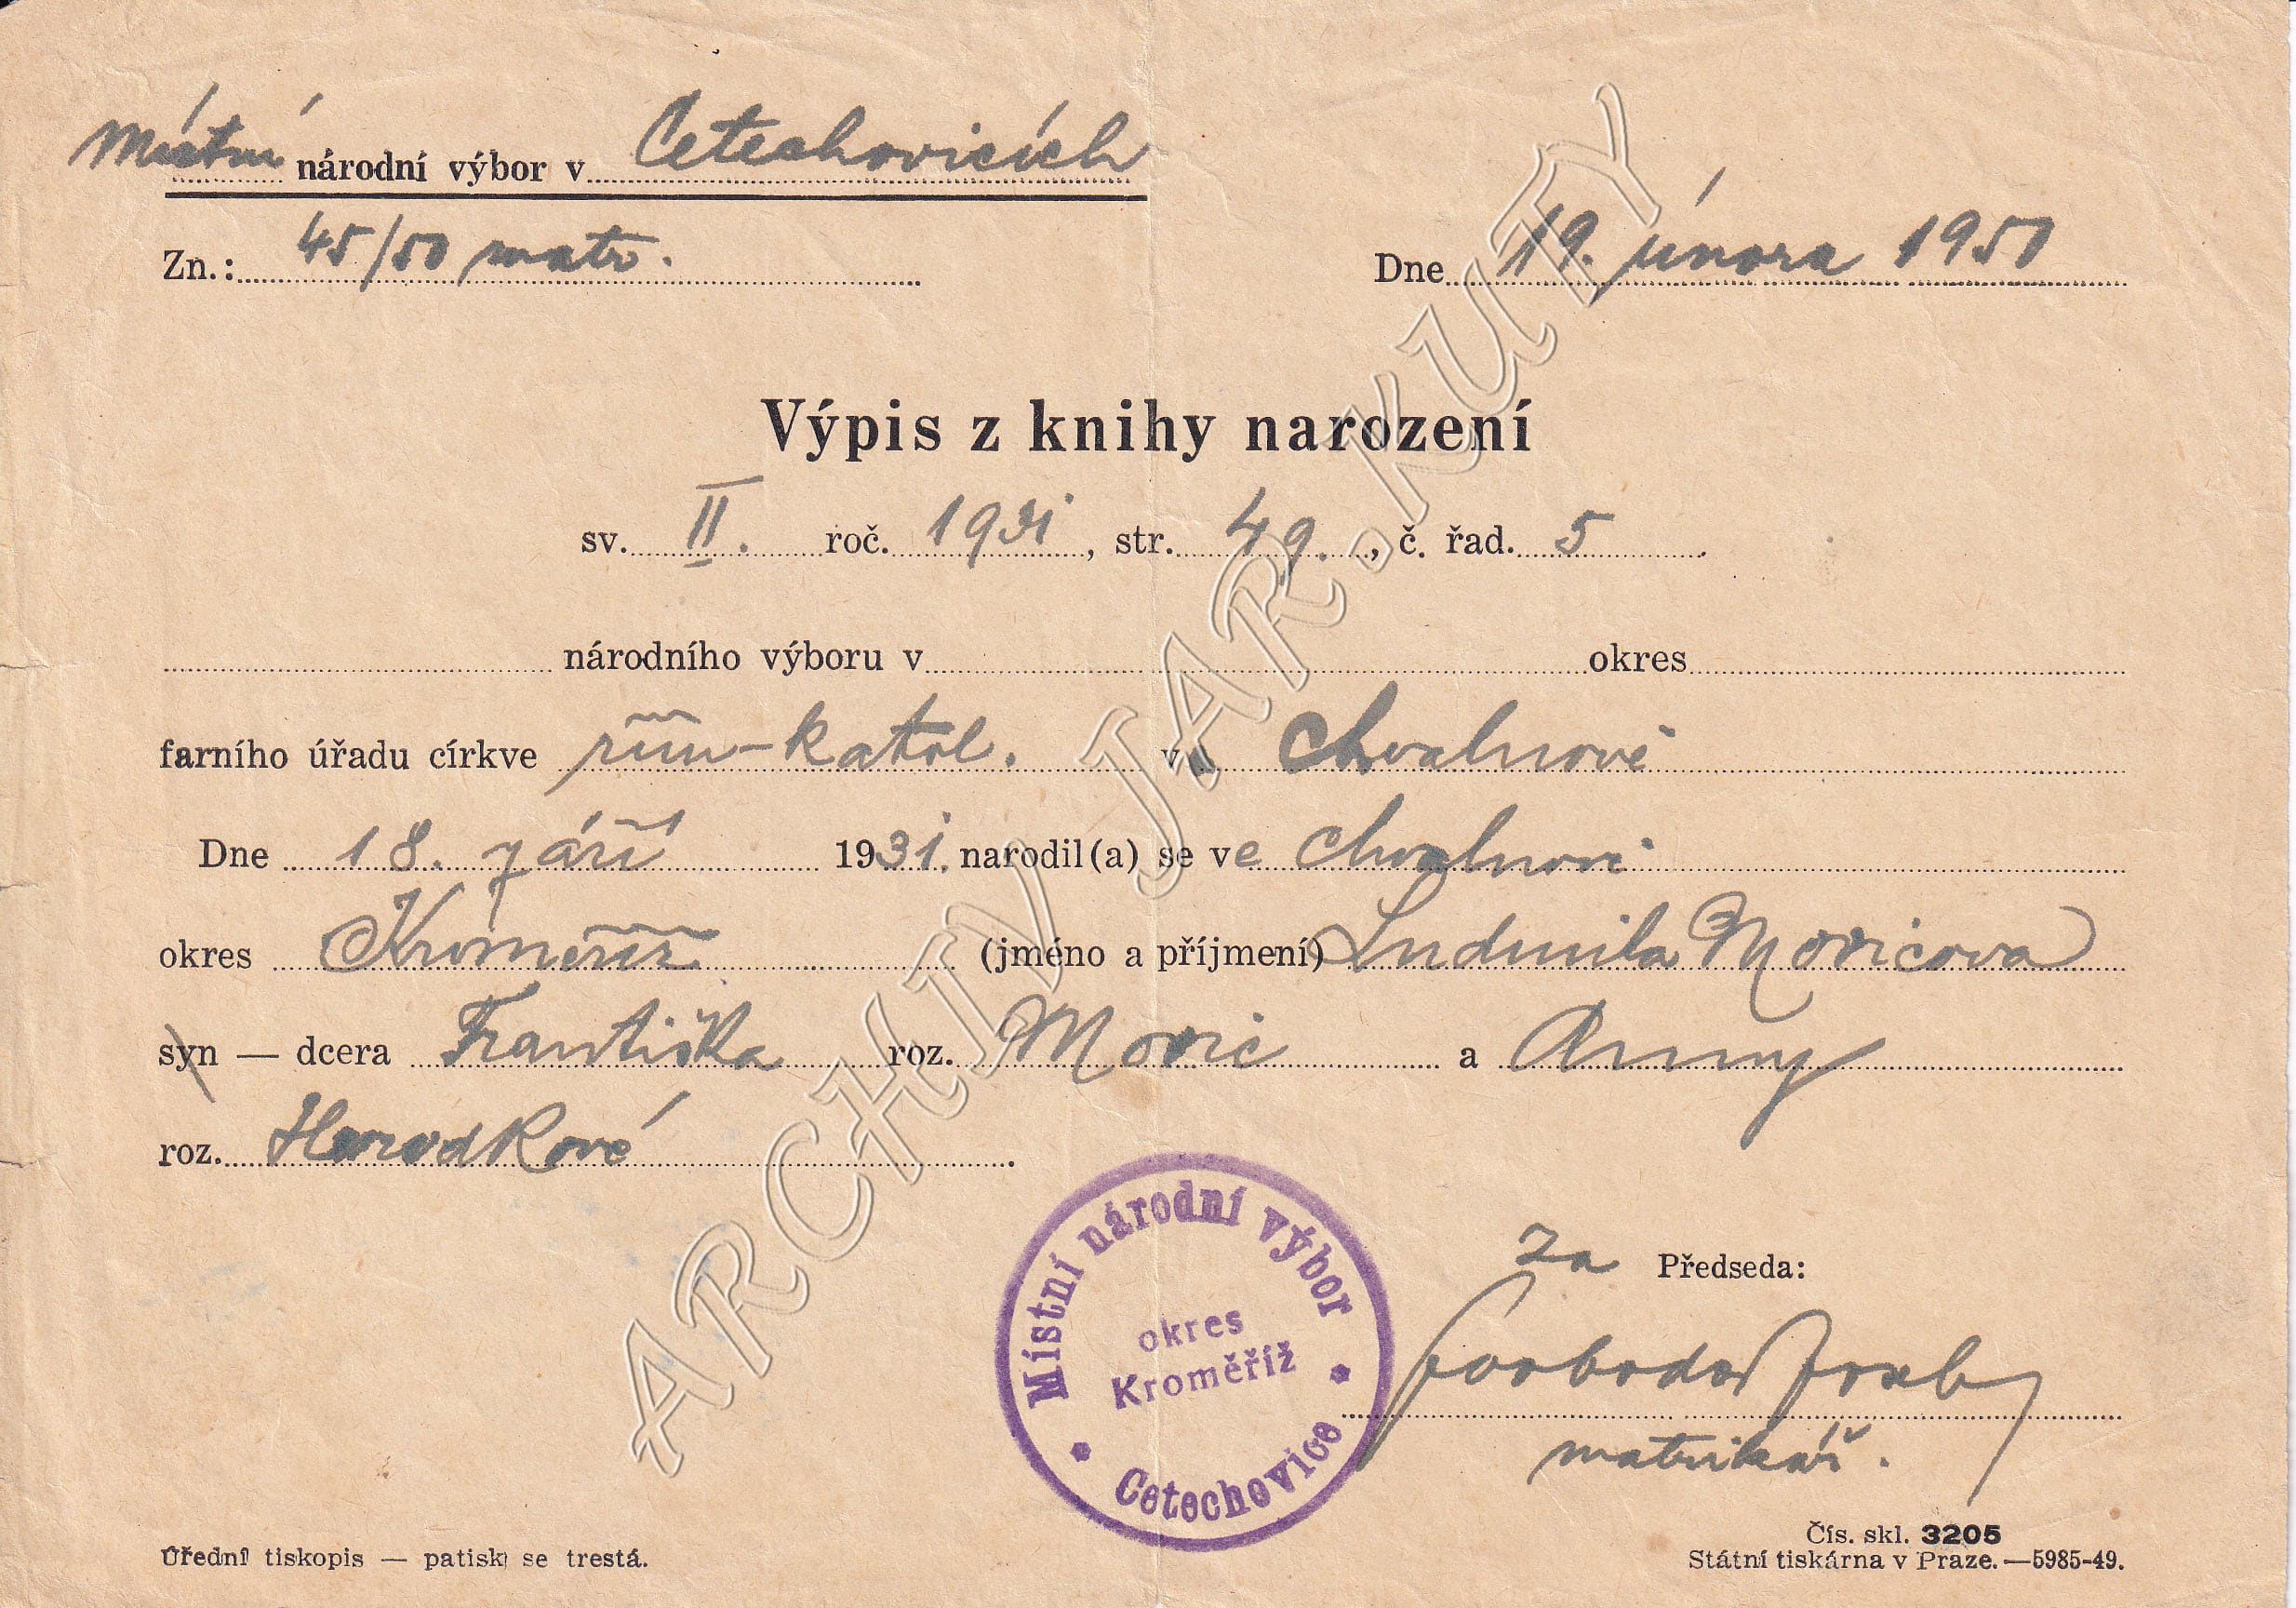 Místní národní výbor v Cetechovicích
Zn.: 45/50 matr.
Dne 19. února 1950
Výpis z knihy narození
sv. II. roč. 1931, str. 49., č. řad. 5
národního výboru v okres
farního úřadu církve řím-katol. v Chvalnově
Dne 18. září 1931. narodil(a) se ve Chvalnově
okres Kroměříž (jméno a příjmení) Ludmila Movicova
syn — dcera Františka roz. Movic a Anny
roz.
Místní národní výbor
okres
Kroměříž
Cetechovice
za Předseda:
Svoboda
matrikář.
Úřední tiskopis — patisk se trestá.
Čís. skl. 3205
Státní tiskárna v Praze.—5985-49.
ARCHIV JAR.KUTÝ